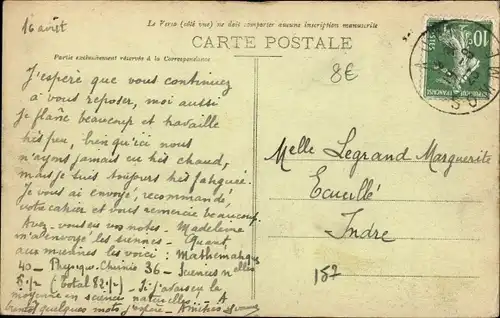 16 août
Le Verso (côté vue) ne doit comporter aucune inscription manuscrite
CARTE POSTALE
Partie exclusivement réservée à la Correspondance
8€
10
REPUBLIQUE FRANÇAISE
J'espère que vous continuez
à vous reposer, moi aussi
je flâne beaucoup et travaille
très peu, bien qu'ici nous
n'ayons jamais eu très chaud,
mais je suis toujours très fatiguée.
Je vous ai envoyé, recommandé,
votre cahier et vous remercie beaucoup.
Avez-vous eu vos notes. Madeleine
m'a envoyé les siennes. Quant
aux miennes les voici: Mathématiques
40 - Physique-Chimie 36 - Sciences nelles
(total 82 1/2) - Si j'avais eu la
moyenne en sciences naturelles. A
bientôt quelques mots j'espère. Amitiés
Melle Legrand Marguerite
Ecueillé
Indre
157